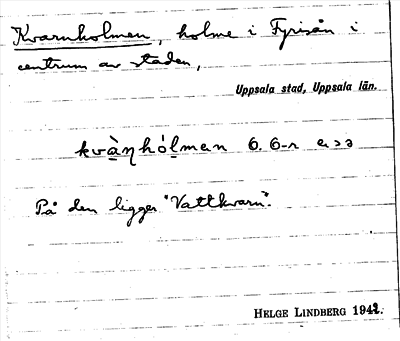 Kvarnholmen, holme i Fyrisån i
centrum av staden,
Uppsala stad, Uppsala län.
kvàn̥hólmen 6. 6-r
På den ligger "Vattkvarn".
HELGE LINDBERG 1942.